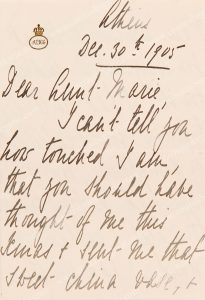 Athens
Dec. 30th 1905
Dear Aunt Marie,
I can't tell you
how touched I am,
that you should have
thought of me this
Xmas & sent me that
sweet china vase, &